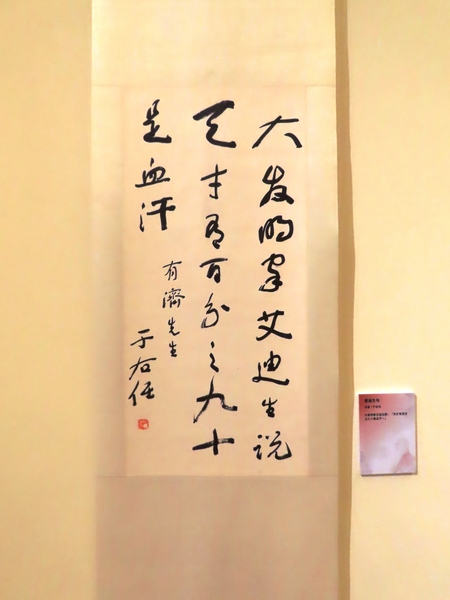 大發明家艾迪生說
天才有百分之九十
是血汗
有濟先生
于右任